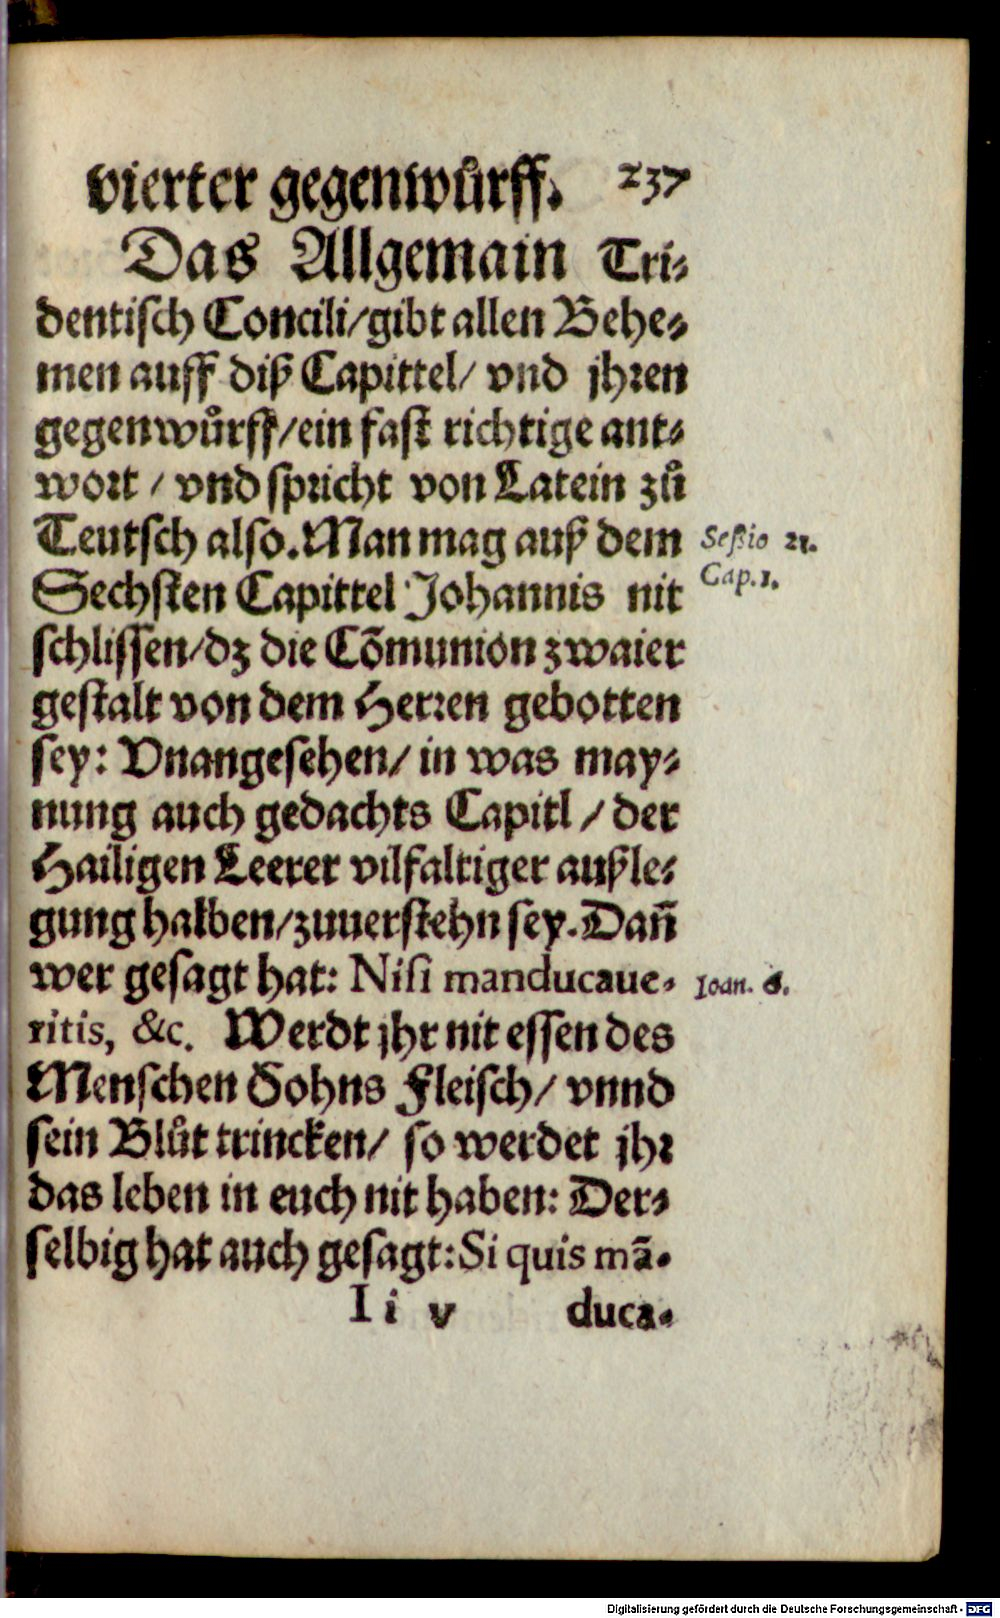 vierter gegenwůrff. 237
Das Allgemain Tri-
dentisch Concili/gibt allen Behe-
men auff diß Capittel/ vnd jhren
gegenwůrff/ein fast richtige ant-
wort / vnd spricht von Latein zů
Teutsch also. Man mag auß dem
Seßio 21.
Sechsten Capittel Johannis nit
Cap. 1.
schlissen/dz die Cõmunion zwaier
gestalt von dem Herren gebotten
sey: Vnangesehen/ in was may-
nung auch gedachts Capitl / der
Hailigen Leerer vilfaltiger außle-
gung halben/zuuerstehn sey. Dañ
wer gesagt hat: Nisi manducaue-
Ioan. 6.
ritis, &c. Werdt jhr nit essen des
Menschen Sohns Fleisch/ vnnd
sein Blůt trincken/ so werdet jhr
das leben in euch nit haben: Der-
selbig hat auch gesagt: Si quis mã-
I i v duca-
Digitalisierung gefördert durch die Deutsche Forschungsgemeinschaft - DFG